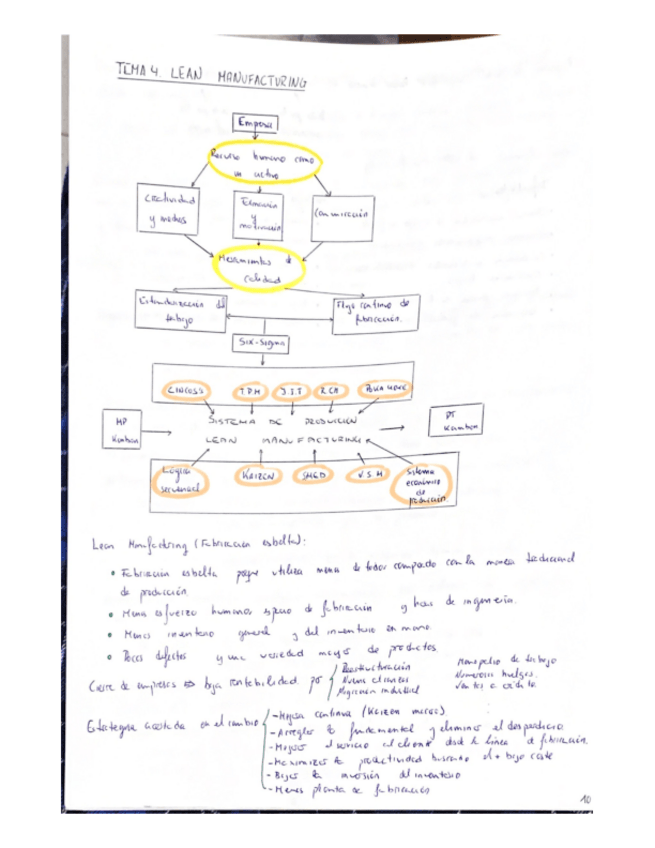 TEMA 4. LEAN MANUFACTURING
Empresa
Recurso humano como
un activo
Creatividad
y medios
Formación
y
motivación
Comunicación
Herramientas de
calidad
Estandarización del
trabajo
Flujo continuo de
fabricación.
Six-Sigma
CINCO S'S
T.P.M
J.I.T
RCA
POKA YOKE
MP
Kanban
SISTEMA DE PRODUCCION
LEAN MANUFACTURING
PT
Kanban
Lógica
secuencial
KAIZEN
SMED
V.S.M
Sistema
económico
de
producción
Lean Manufacturing (Fabricación esbelta):
• Fabricación esbelta porque utiliza menos de todo comparado con la manera tradicional
de producción.
• Menos esfuerzo humano, espacio de fabricación y horas de ingeniería.
• Menos inventario general y del inventario en mano.
• Pocos defectos y una variedad mayor de productos.
Cierre de empresas baja rentabilidad por
Reestructuración
Migración industrial
Monopolio de trabajo
Numerosas huelgas.
Ventas a crédito
Estrategia acertada en el cambio
- Mejora continua (Kaizen
- Arreglar lo fundamental y eliminar el desperdicio.
- Mejorar el servicio al cliente desde la línea de fabricación.
- Maximizar la productividad buscando el + bajo coste
- Bajar la inversión del inventario
- Menos planta de fabricación
10